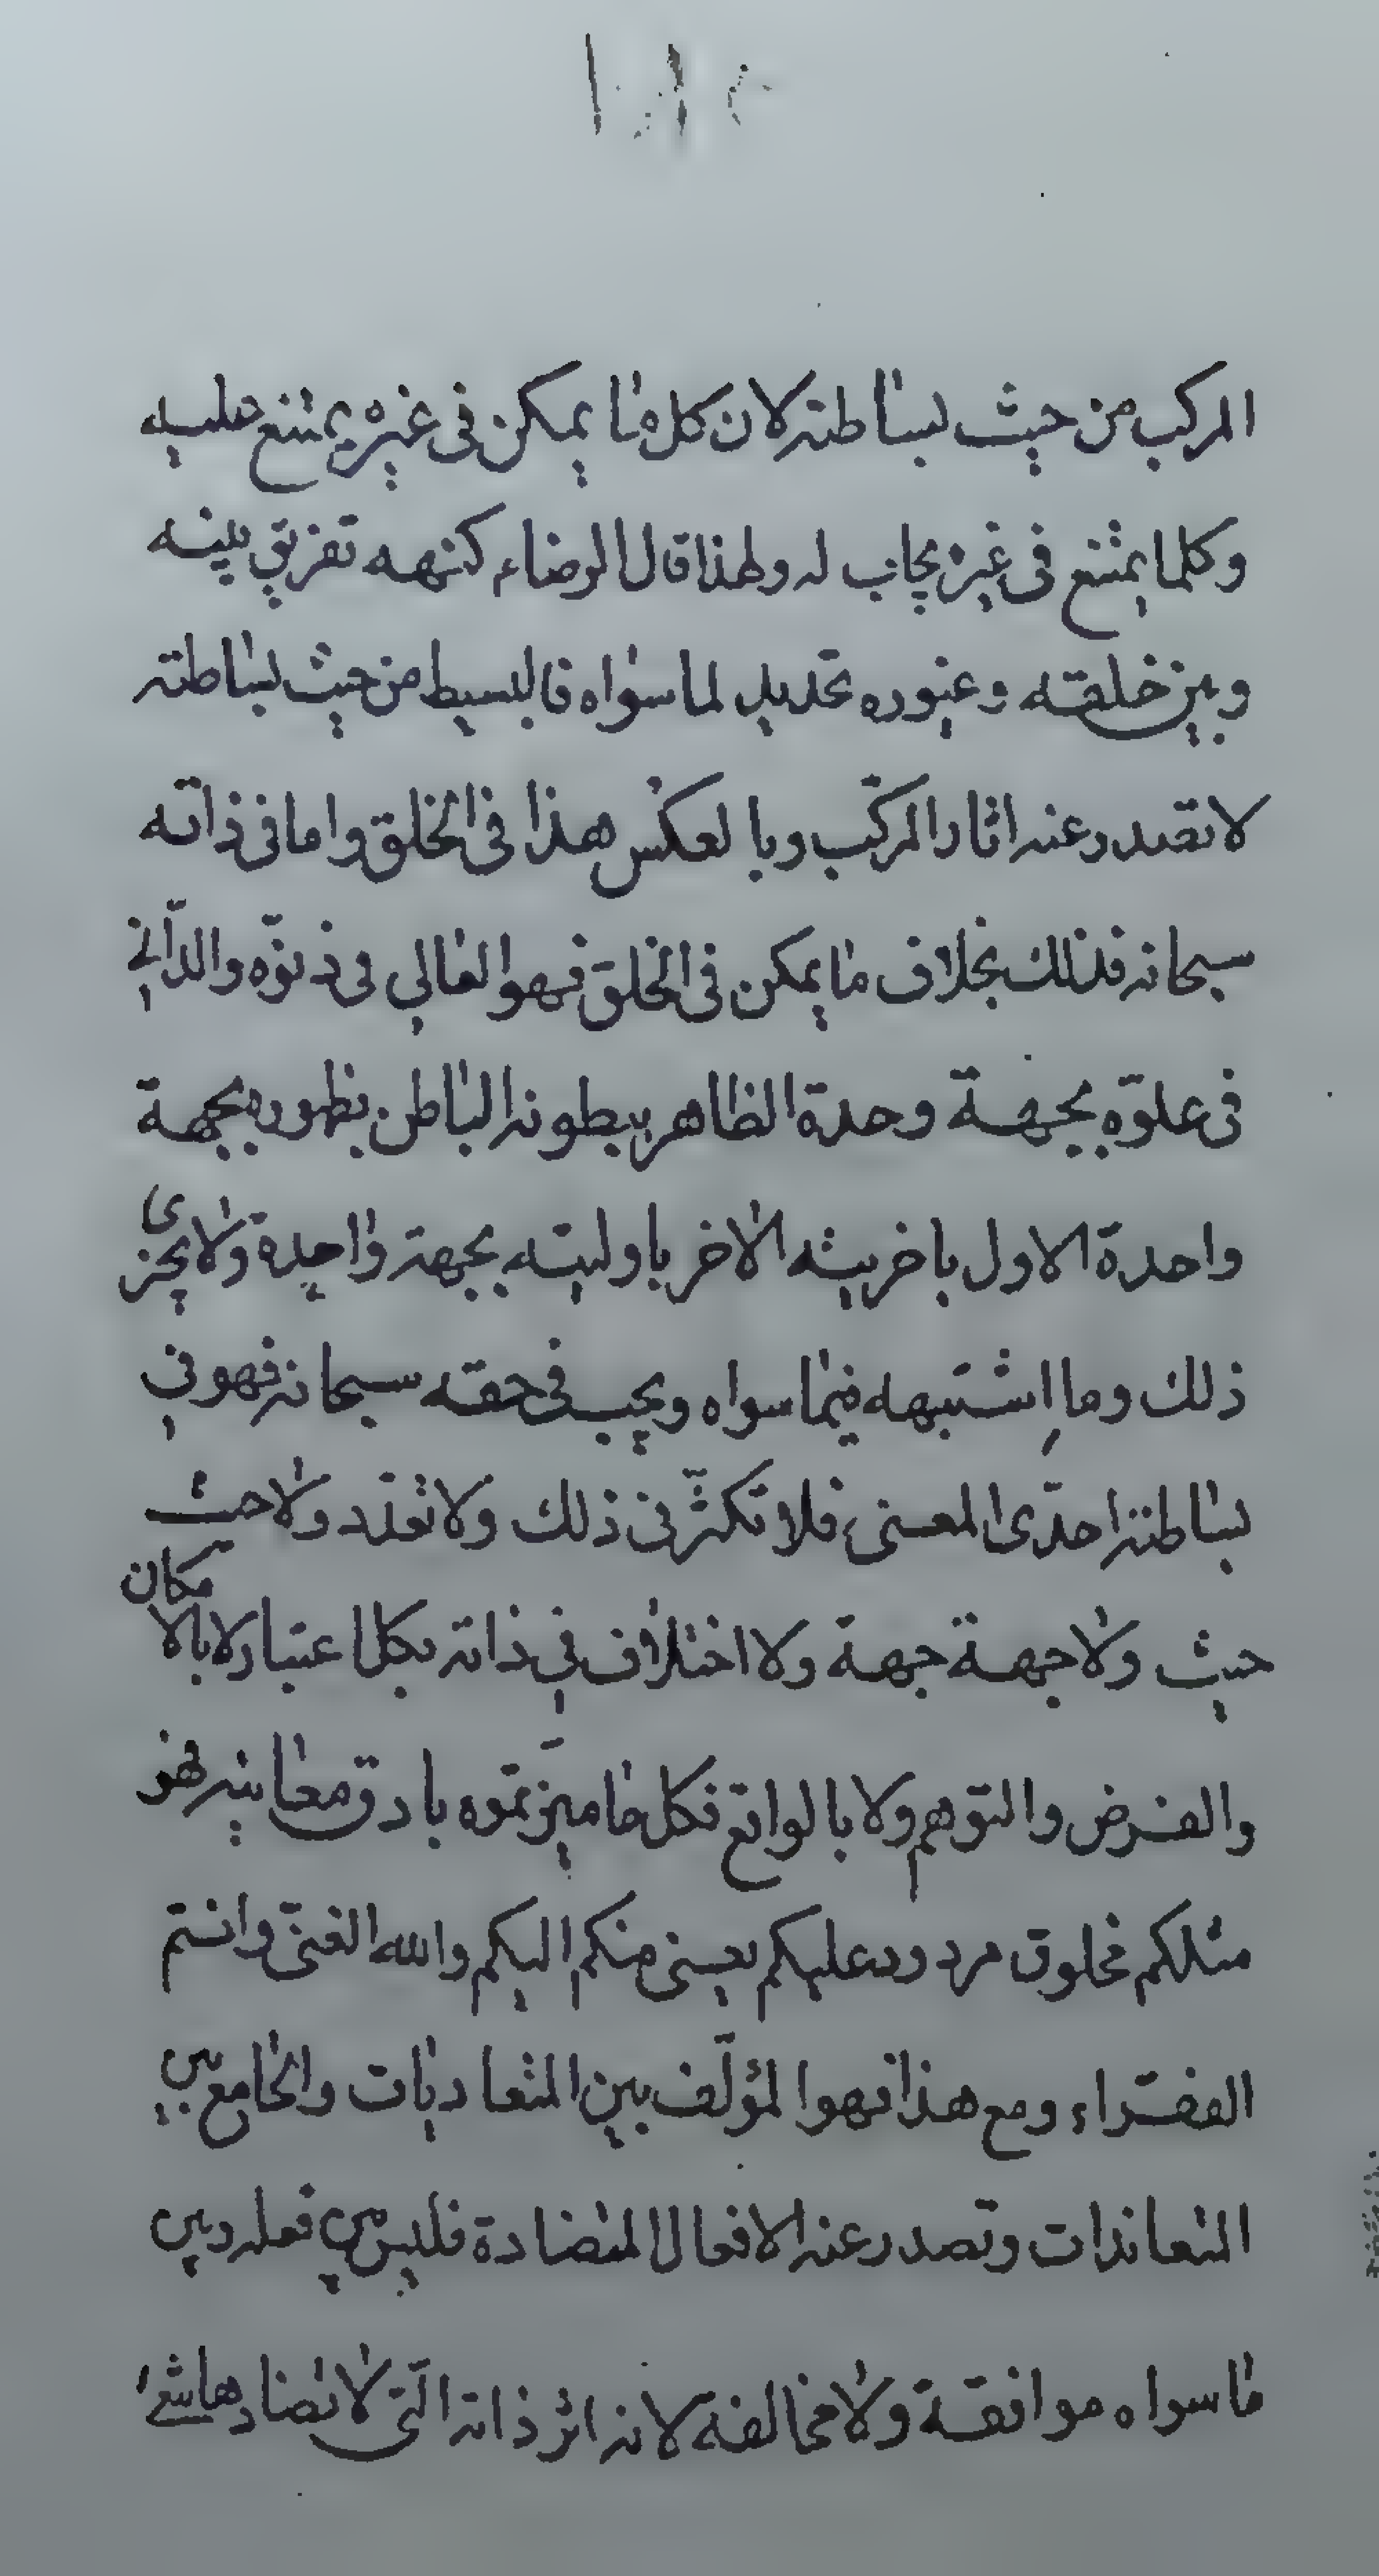 المركب من حيث بساطته لان كل ما يمكن في غيره يمتنع عليه
وكلما يمتنع في غيره يجاب له ولهذا قال الرضاء كنهه تفريق بينه
وبين خلقه وغيوره تحديد لما سواه فالبسيط من حيث بساطته
لا تصدر عنه اثار المركّب وبالعكس هذا في الخلق واما في ذاته
سبحانه فذلك بخلاف ما يمكن في الخلق فهو العالي في دنوّه والدّاني
في علوّه بجهة وحدة الظاهر ببطونه الباطن بظهوره بجهة
واحدة الاول باخريته الاخر باوليته بجهة واحدة ولا يجزى
ذلك وما اشتبهه فيما سواه ويجب في حقه سبحانه فهو في
بساطته احدّى المعنى فلا تكثّر في ذلك ولا تعدّد ولا حيث
حيث ولا جهة جهة ولا اختلاف في ذاته بكل اعتبار لا بالامكان
والفرض والتوهم ولا بالواقع فكل ما ميّزتموه بادق معانيه فهو
مثلكم مخلوق مردود عليكم يعني منكم اليكم والله الغنيّ وانتم
الفقراء ومع هذا فهو المؤلّف بين المتعاديات والجامع بين
المتعاندات وتصدر عنه الافعال المتضادة فليس بين فعله وبين
ما سواه موافقة ولا مخالفة لانه اثر ذاته الّتي لا يضادها شئ